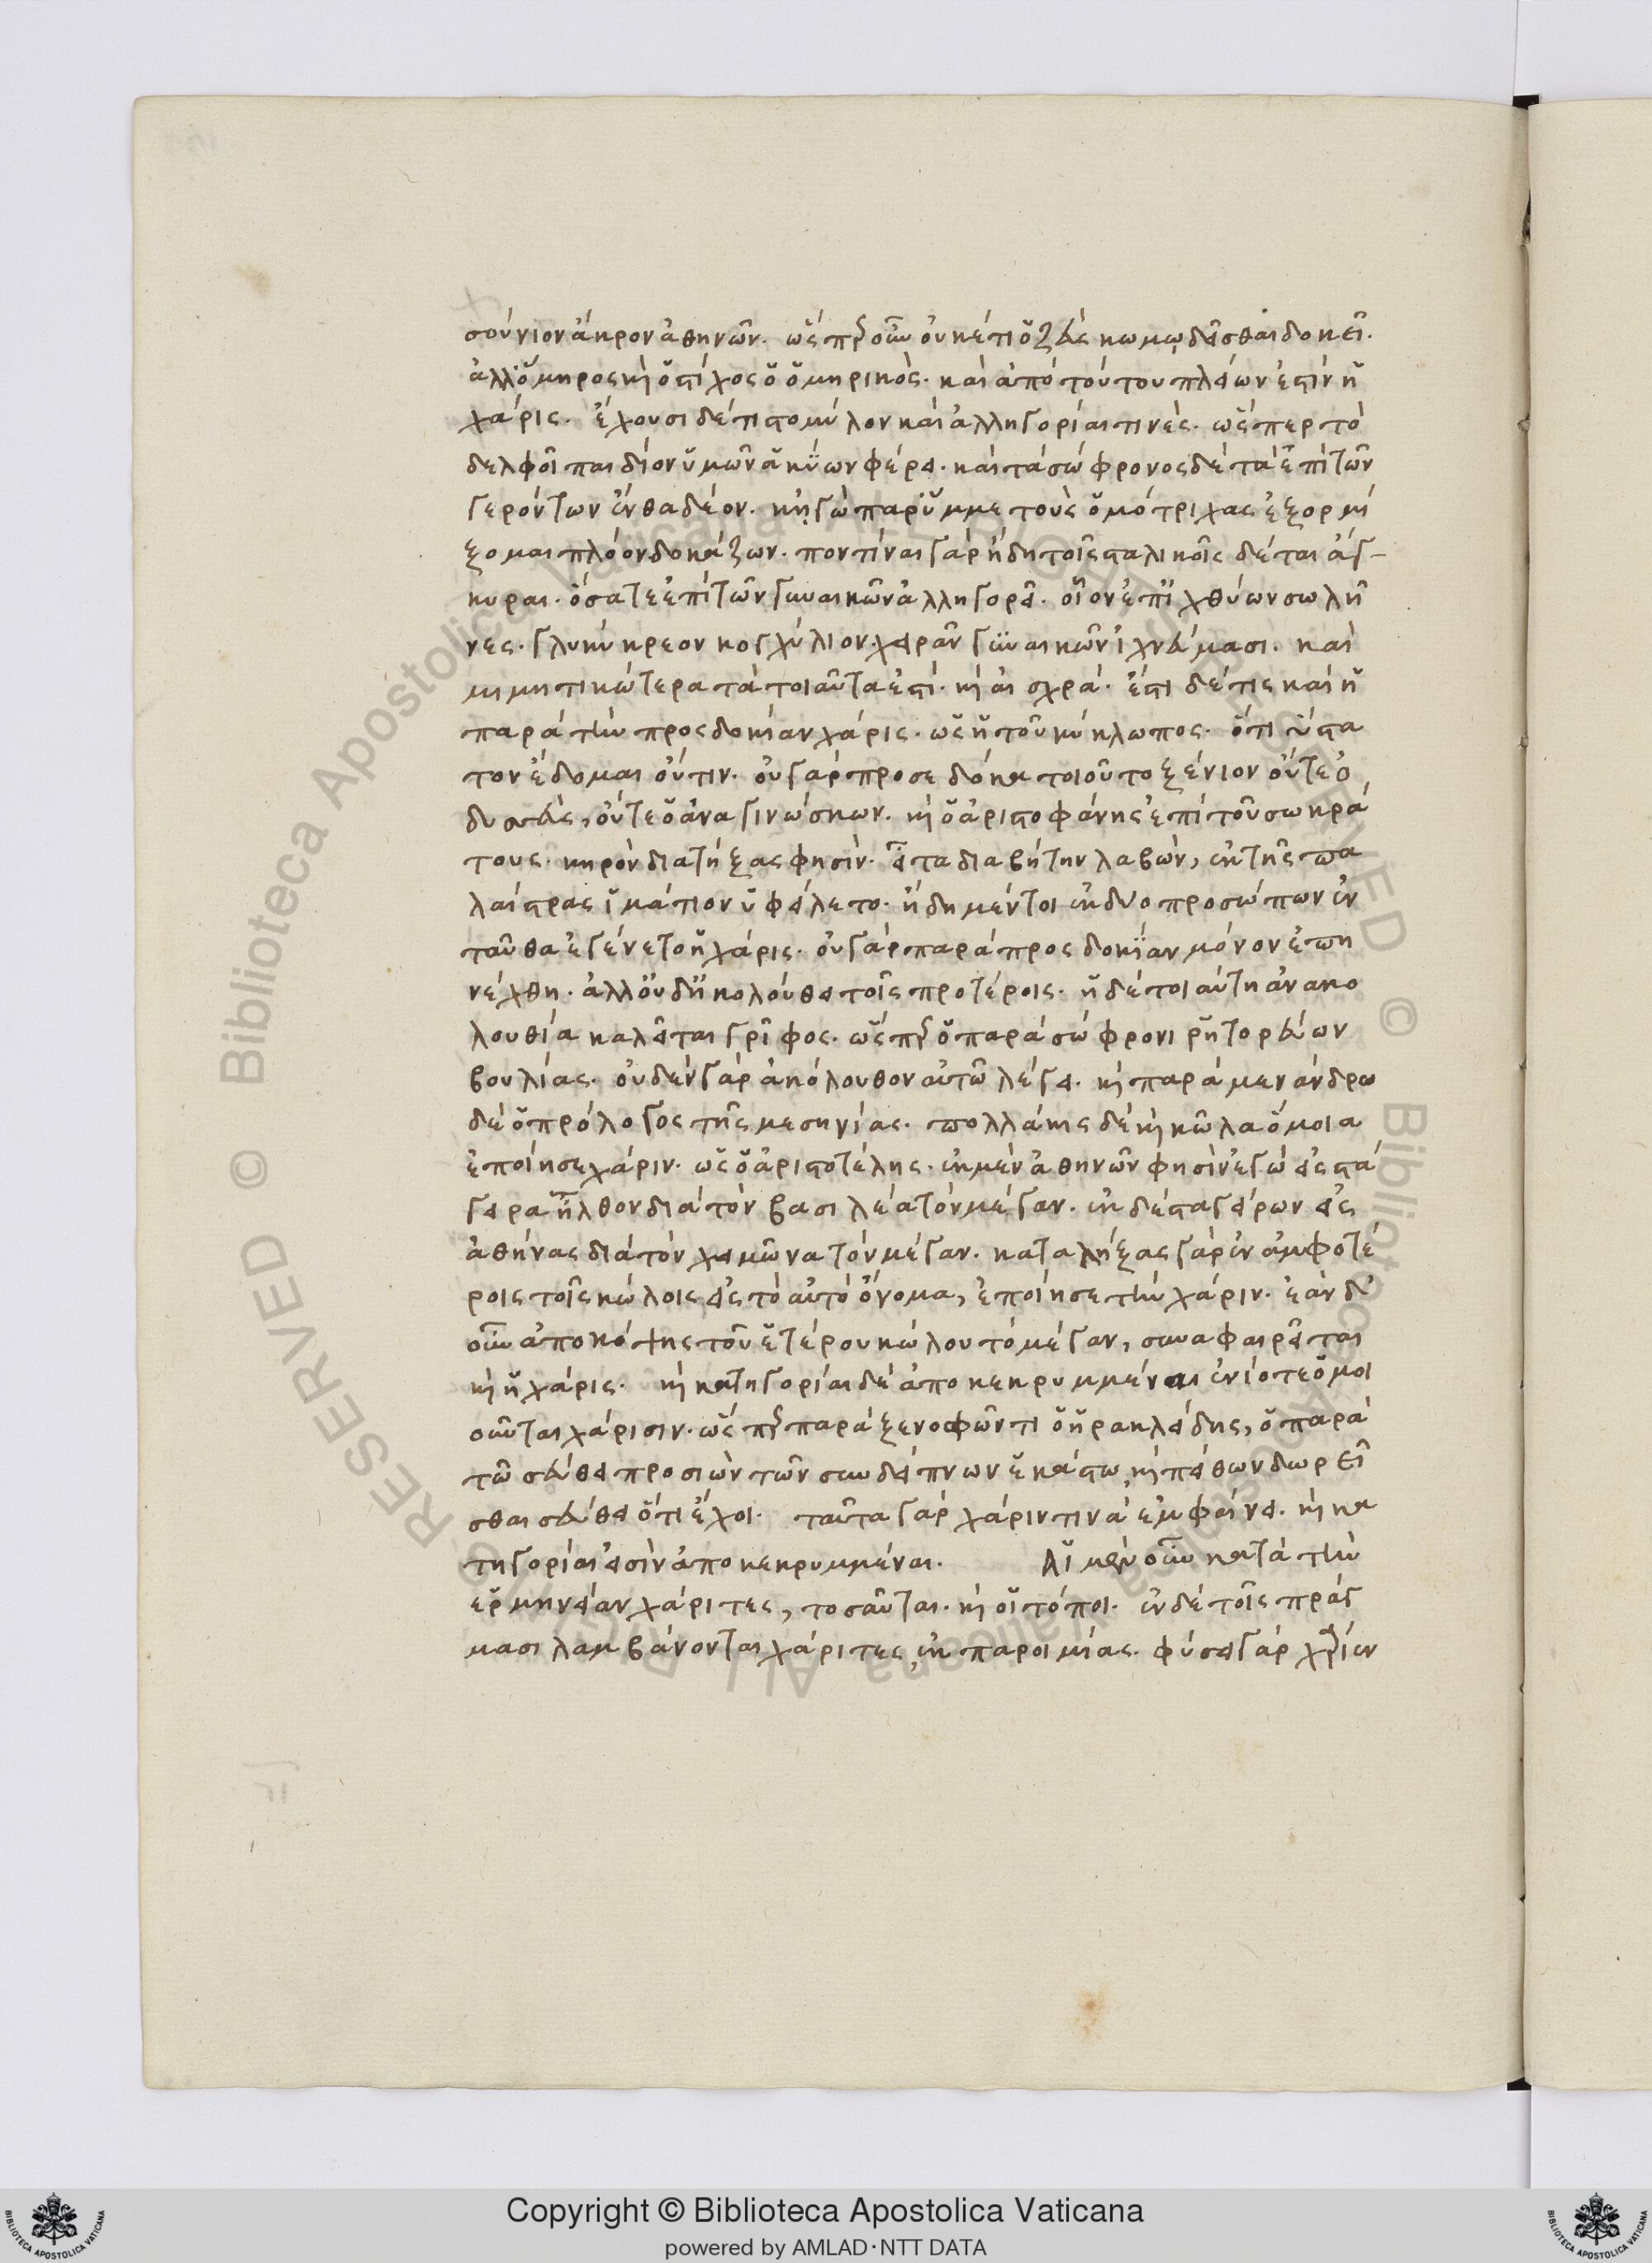 σούνιον ἄκρον ἀθηνῶν. ὥσπερ οὖν οὐκέτι ὁ ζεὺς κωμῳδεῖσθαι δοκεῖ.
ἀλλ' ὅμηρος καὶ ὁ στίχος ὁ ὁμηρικός. καὶ ἀπὸ τούτου πλείων ἐστὶν ἡ
χάρις. ἔχουσι δέ τι στομύλον καὶ ἀλληγορίαι τινές. ὥσπερ τὸ
δελφοὶ παιδίον ὑμῶν ἁ κύων φέρει. καὶ τὰ σώφρονος δὲ τὰ ἐπὶ τῶν
γερόντων ἐνθαδέον. κἠγὼ παρ' ὔμμε τοὺς ὁμότριχας ἐξορμί
ξομαι πλόον δοκάζων. ποντίναι γὰρ ἤδη τοῖς ταλικοῖς δέται ἄγ-
κυραι. ὅσα τε ἐπὶ τῶν γυναικῶν ἀλληγορεῖ. οἷον ἐπ' ἰχθύων σωλῆ
νες. γλυκύκρεον κογχύλιον. χειρᾶν γυναικῶν ἰχνεύμασι. καὶ
μιμητικώτερα τὰ τοιαῦτα ἐστί. καὶ αἰσχρά. ἔστι δέ τις καὶ ἡ
παρὰ τὴν προσδοκίαν χάρις. ὡς ἡ τοῦ κύκλωπος. ὅτι ὕστα
τον ἔδομαι οὔτιν. οὐ γὰρ προσεδόκα τοιοῦτο ξένιον οὔτε ὀ
δυσεύς, οὔτε ὁ ἀναγινώσκων. καὶ ὁ ἀριστοφάνης ἐπὶ τοῦ σωκρά
τους. κηρὸν διατήξας φησίν. εἶτα διαβήτην λαβών, ἐκ τῆς πα
λαίστρας ἱμάτιον ὑφείλετο. ἤδη μέντοι ἐκ δύο προσώπων ἐν
ταῦθα ἐγένετο ἡ χάρις. οὐ γὰρ παρὰ προσδοκίαν μόνον ἐπη
νέχθη. ἀλλ' οὐδ' ἠκολούθει τοῖς προτέροις. ἡ δὲ τοιαύτη ἀνακο
λουθία καλεῖται γρῖφος. ὥσπερ ὁ παρὰ σώφρονι ῥητορεύων
βουλίας. οὐδὲν γὰρ ἀκόλουθον αὐτῶ λέγει. καὶ παρὰ μενάνδρω
δὲ ὁ πρόλογος τῆς μεσηνίας. πολλάκις δὲ καὶ κῶλα ὅμοια
ἐποίησε χάριν. ὡς ὁ ἀριστοτέλης. ἐκ μὲν ἀθηνῶν φησὶν ἐγὼ εἰς στά
γειρα ἦλθον διὰ τὸν βασιλέα τὸν μέγαν. ἐκ δὲ σταγείρων εἰς
ἀθήνας διὰ τὸν χειμῶνα τὸν μέγαν. καταλήξας γὰρ ἐν ἀμφοτέ
ροις τοῖς κώλοις εἰς τὸ αὐτὸ ὄνομα, ἐποίησε τὴν χάριν. ἐὰν δ'
οὖν ἀποκόψης τοῦ ἑτέρου κώλου τὸ μέγαν, συναφαιρεῖται
καὶ ἡ χάρις. καὶ κατηγορίαι δὲ ἀποκεκρυμμέναι ἐνίοτε ὁμοι
οῦνται χάρισιν. ὥσπερ παρὰ ξενοφῶντι ὁ ἡρακλείδης, ὁ παρὰ
τῶ σεύθει προσιὼν τῶν συνδείπνων ἑκάστω, καὶ πείθων δωρεῖ
σθαι σεύθει ὅτι ἔχοι. ταῦτα γὰρ χάριν τινὰ ἐμφαίνει. καὶ κα
τηγορίαι εἰσὶν ἀποκεκρυμμέναι. Αἱ μὲν οὖν κατὰ τὴν
ἑρμηνείαν χάριτες, τοσαῦται. καὶ οἱ τόποι. ἐν δὲ τοῖς πράγ
μασι λαμβάνονται χάριτες, ἐκ παροιμίας. φύσει γὰρ χαρίεν
Copyright © Biblioteca Apostolica Vaticana
powered by AMLAD·NTT DATA